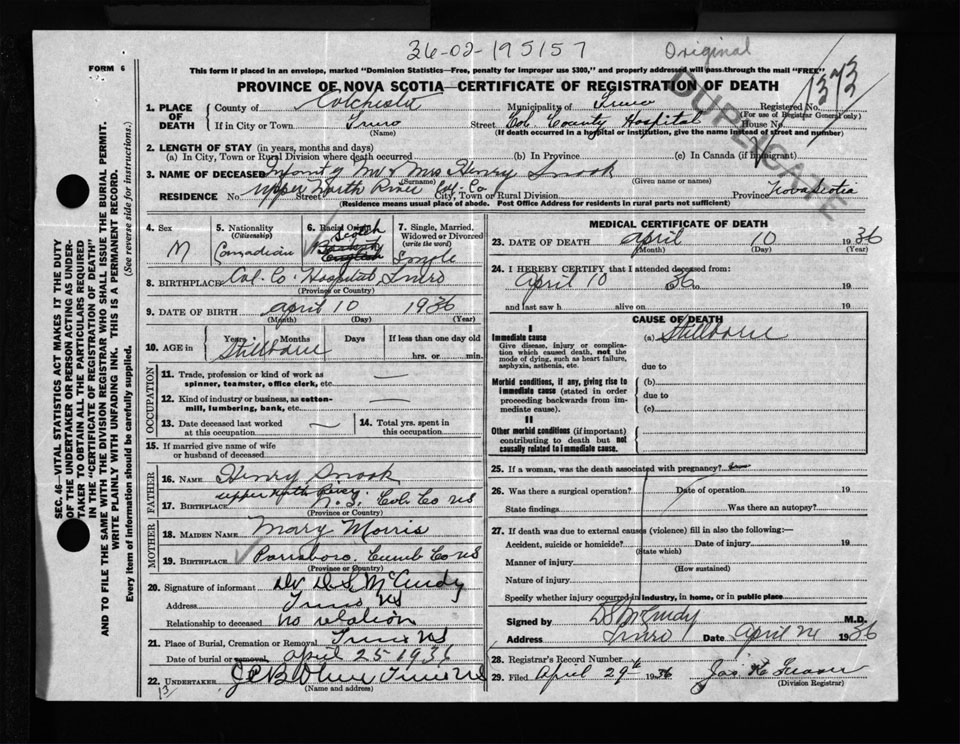 36-02-195157
Original
FORM 6
This form if placed in an envelope, marked "Dominion Statistics—Free, penalty for improper use $300," and properly addressed will pass through the mail "FREE"
PROVINCE OF NOVA SCOTIA—CERTIFICATE OF REGISTRATION OF DEATH
DUPLICATE
1373
1. PLACE OF DEATH
County of Colchester Municipality of Truro Registered No.
(For use of Registrar General only)
If in City or Town Truro Street Col. County Hospital House No.
(Name) (If death occurred in a hospital or institution, give the name instead of street and number)
2. LENGTH OF STAY (in years, months and days)
(a) In City, Town or Rural Division where death occurred (b) In Province (c) In Canada (if immigrant)
3. NAME OF DECEASED Infant of Mr & Mrs Henry Snook
(Surname) (Given name or names)
RESIDENCE No. Upper North River Street Col. Co City, Town or Rural Division Province Nova Scotia
(Residence means usual place of abode. Post Office Address for residents in rural parts not sufficient)
4. Sex
M
5. Nationality
(Citizenship)
Canadian
6. Racial Origin
Scotch
English
7. Single, Married, Widowed or Divorced
(write the word)
Single
8. BIRTHPLACE Col. Co. Hospital Truro
(Province or Country)
9. DATE OF BIRTH April 10 1936
(Month) (Day) (Year)
10. AGE in
Years Months Days If less than one day old
Stillborn hrs. or min.
OCCUPATION
11. Trade, profession or kind of work as spinner, teamster, office clerk, etc. —
12. Kind of industry or business, as cotton-mill, lumbering, bank, etc. —
13. Date deceased last worked at this occupation
14. Total yrs. spent in this occupation
15. If married give name of wife or husband of deceased
FATHER
16. NAME Henry Snook
17. BIRTHPLACE Upper North River N.S. Col. Co NS
(Province or Country)
MOTHER
18. MAIDEN NAME Mary Morris
19. BIRTHPLACE Parrsboro. Cumb Co NS
(Province or Country)
20. Signature of informant Dr D S McCurdy
Address Truro NS
Relationship to deceased no relation
21. Place of Burial, Cremation or Removal Truro NS
Date of burial or removal April 25 1936
22. UNDERTAKER Truro NS
(Name and Address)
13
MEDICAL CERTIFICATE OF DEATH
23. DATE OF DEATH April 10 1936
(Month) (Day) (Year)
24. I HEREBY CERTIFY that I attended deceased from:
April 10 36 to 19
and last saw h alive on 19
CAUSE OF DEATH
I
Immediate cause
Give disease, injury or complication which caused death, not the mode of dying, such as heart failure, asphyxia, asthenia, etc.
(a) Stillborn
due to
Morbid conditions, if any, giving rise to immediate cause (stated in order proceeding backwards from immediate cause).
(b)
due to
(c)
II
Other morbid conditions (if important) contributing to death but not causally related to immediate cause.
25. If a woman, was the death associated with pregnancy?
26. Was there a surgical operation? Date of operation 19
State findings Was there an autopsy?
27. If death was due to external causes (violence) fill in also the following:—
Accident, suicide or homicide? Date of injury 19
(State which)
Manner of injury
(How sustained)
Nature of injury
Specify whether injury occurred in industry, in home, or in public place
Signed by D S McCurdy M.D.
Address Truro Date April 24 1936
28. Registrar's Record Number
29. Filed April 29th 1936 Jas K Fraser
(Division Registrar)
SEC. 46—VITAL STATISTICS ACT MAKES IT THE DUTY
OF THE UNDERTAKER OR PERSON ACTING AS UNDERTAKER TO OBTAIN ALL THE PARTICULARS REQUIRED
IN THE "CERTIFICATE OF REGISTRATION OF DEATH"
AND TO FILE THE SAME WITH THE DIVISION REGISTRAR WHO SHALL ISSUE THE BURIAL PERMIT.
WRITE PLAINLY WITH UNFADING INK. THIS IS A PERMANENT RECORD.
Every item of information should be carefully supplied. (See reverse side for instructions.)